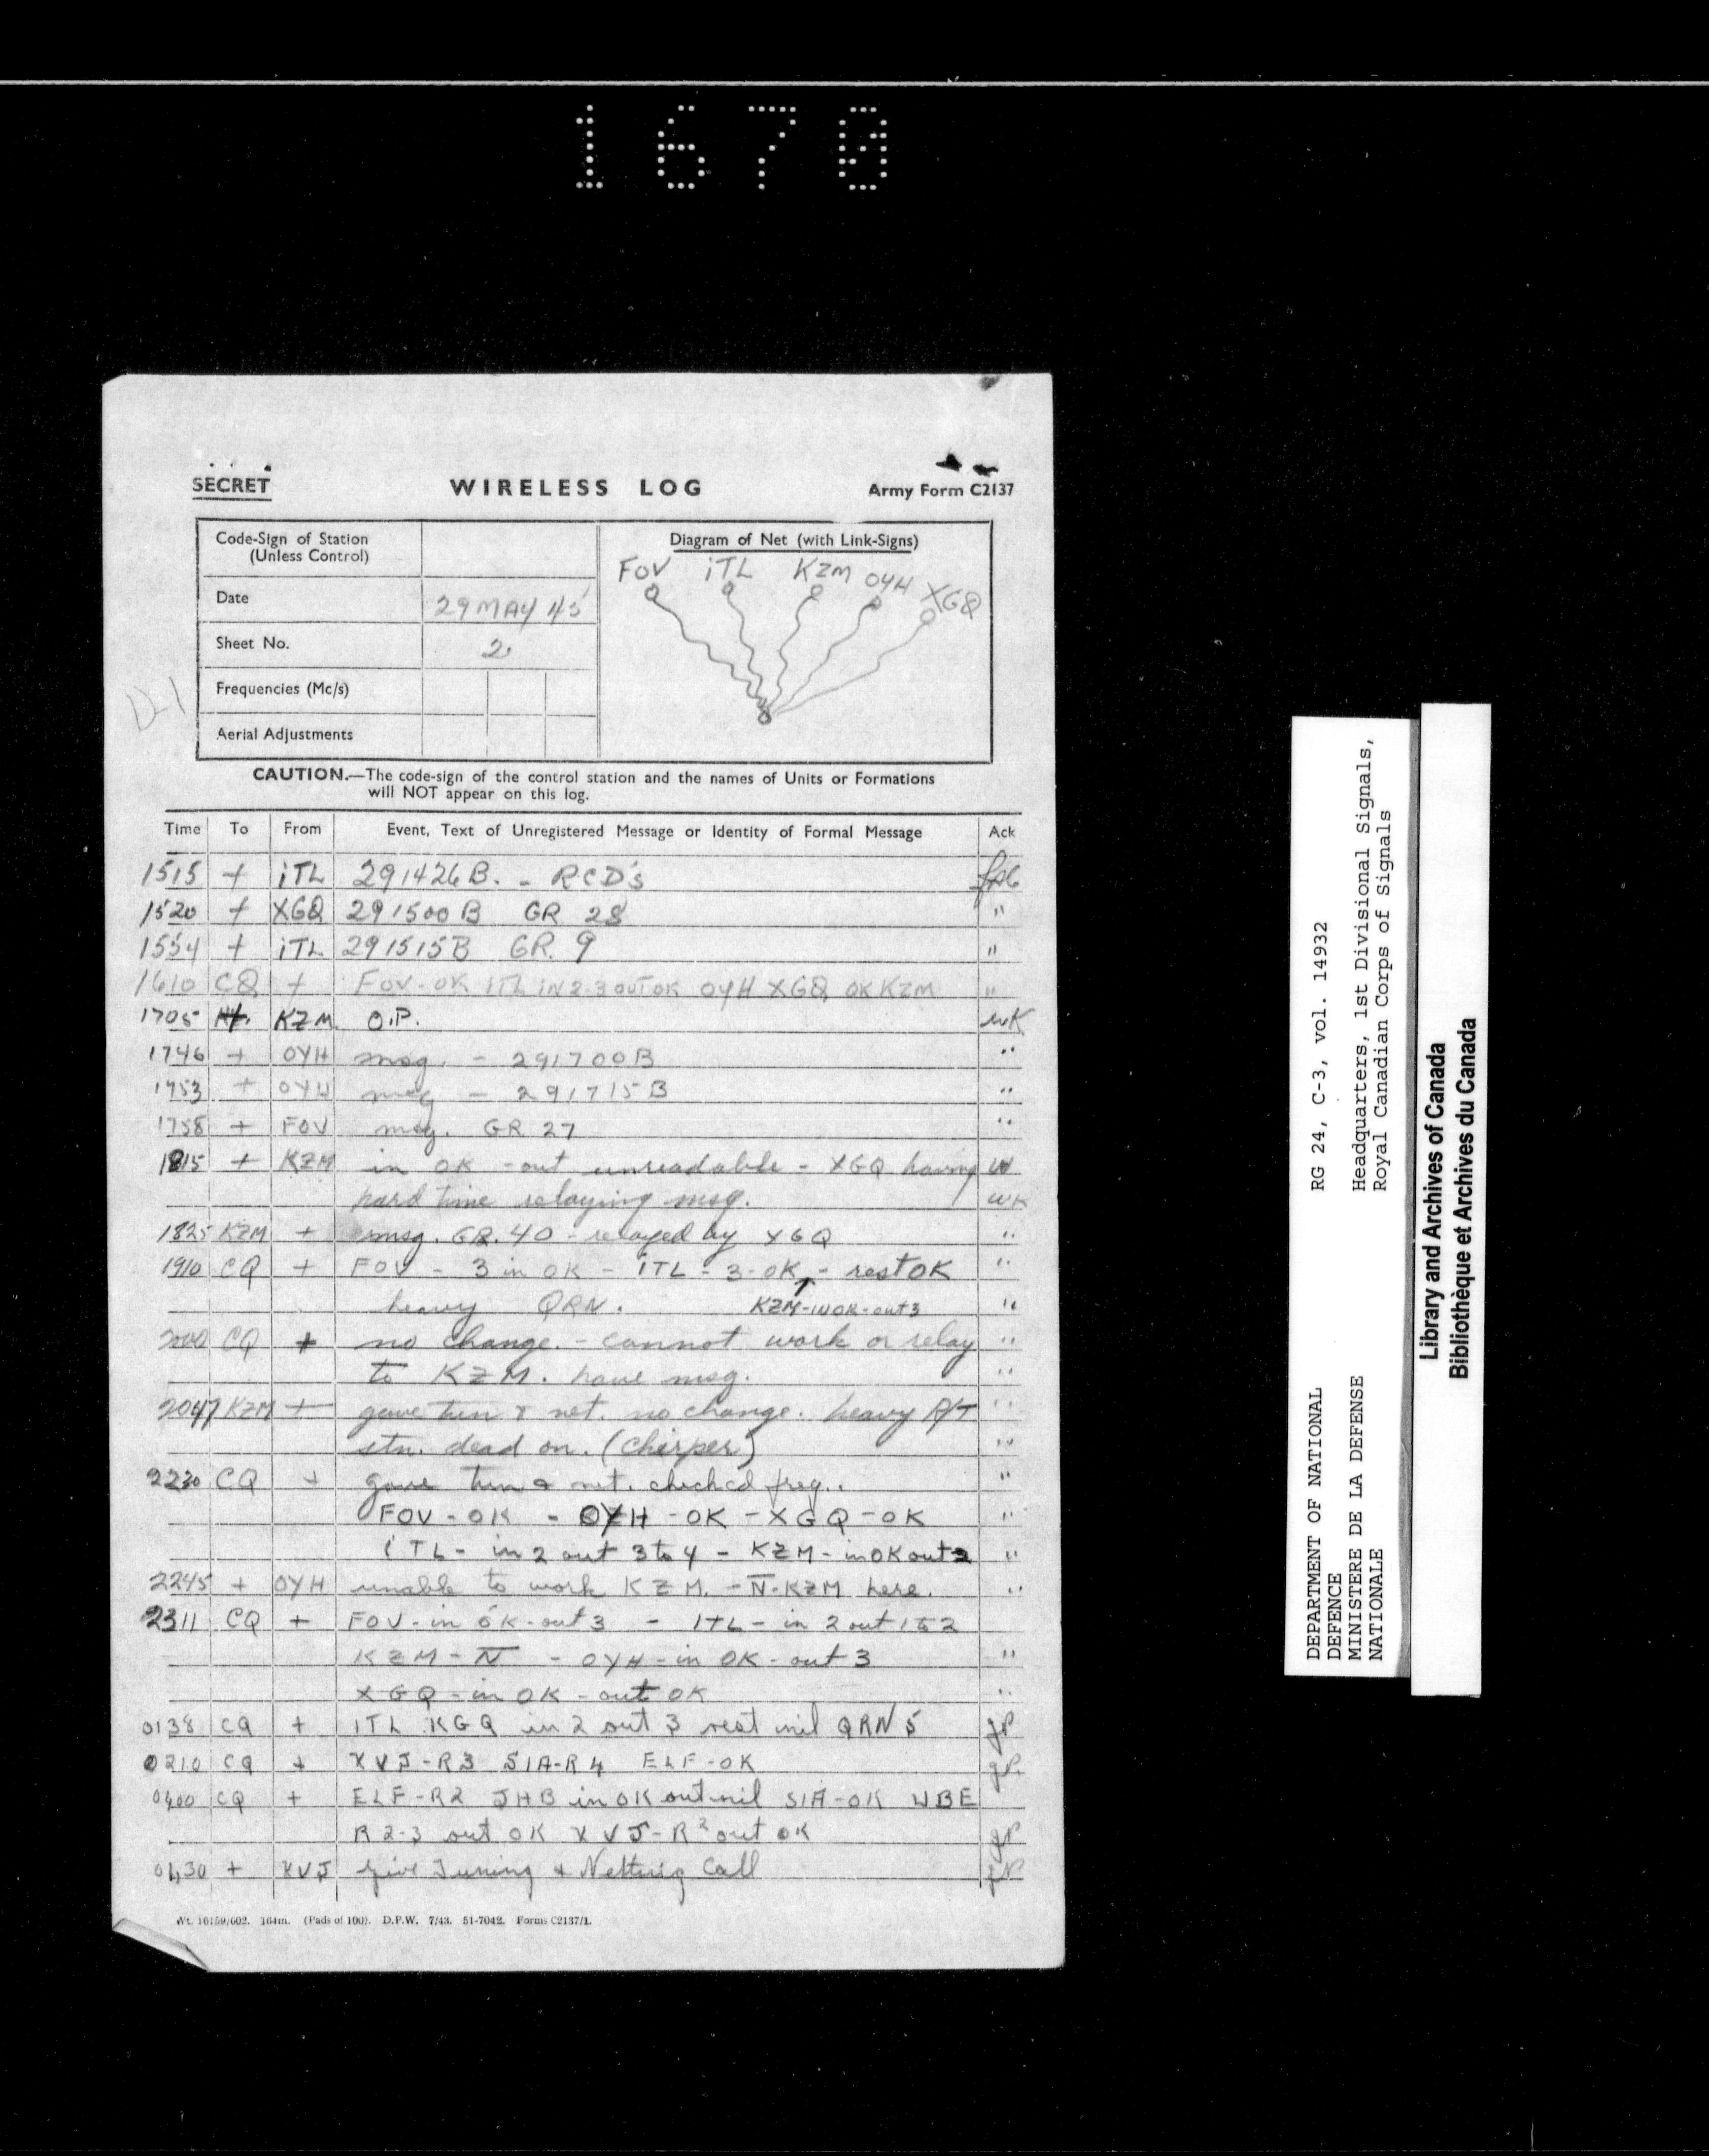 1670
SECRET WIRELESS LOG Army Form C2137
Code-Sign of Station
(Unless Control)
Date 29 MAY 45
Sheet No. 2
Frequencies (Mc/s)
Aerial Adjustments
D-1
Diagram of Net (with Link-Signs)
FOV iTL KZM OYH XGQ
CAUTION.—The code-sign of the control station and the names of Units or Formations
will NOT appear on this log.
Time To From Event, Text of Unregistered Message or Identity of Formal Message Ack
1515 + iTL 291426B. - RCD's
1520 + XGQ 291500B GR 28 "
1554 + iTL 291515B GR. 9 "
1610 CQ + FOV-OK ITL IN 2-3 OUT OK OYH XGQ OK KZM "
1705 KZM O.P. WK
1746 + OYH msg. - 291700B "
1753 + OYH msg - 291715B "
1758 + FOV msg. GR 27 "
1815 + KZM in OK - out unreadable - XGQ having W
hard time relaying msg. WK
1825 KZM + msg. GR. 40 - relayed by XGQ "
1910 CQ + FOV - 3 in OK - iTL - 3-OK - rest OK "
heavy QRN. KZM-in OK-out 3 "
2000 CQ + no change. - cannot work or relay "
to KZM. have msg. "
2047 KZM + gave tun & net. no change. heavy R/T "
stn. dead on. (chirper) "
2230 CQ + gave tun & net. checked freq.. "
FOV - OK - OYH - OK - XGQ - OK "
iTL - in 2 out 3 to 4 - KZM - in OK out 2 "
2245 + OYH unable to work KZM. - N̅-KZM here. "
2311 CQ + FOV - in OK - out 3 - ITL - in 2 out 1 to 2
KZM - N̅ - OYH - in OK - out 3 "
XGQ - in OK - out OK "
0138 CQ + ITL KGQ in 2 out 3 rest nil QRN 5 gP
0210 CQ + XVJ-R3 SIA-R4 ELF-OK gP.
0400 CQ + ELF-R2 JHB in OK out nil SIA-OK WBE
R 2-3 out OK XVJ-R2 out OK gP
0430 + XVJ Give Tuning & Netting Call gP
Wt. 16159/602. 164m. (Pads of 100). D.P.W. 7/43. 51-7042. Forms C2137/1.
DEPARTMENT OF NATIONAL
DEFENCE
MINISTERE DE LA DEFENSE
NATIONALE
RG 24, C-3, vol. 14932
Headquarters, 1st Divisional Signals,
Royal Canadian Corps of Signals
Library and Archives of Canada
Bibliothèque et Archives du Canada